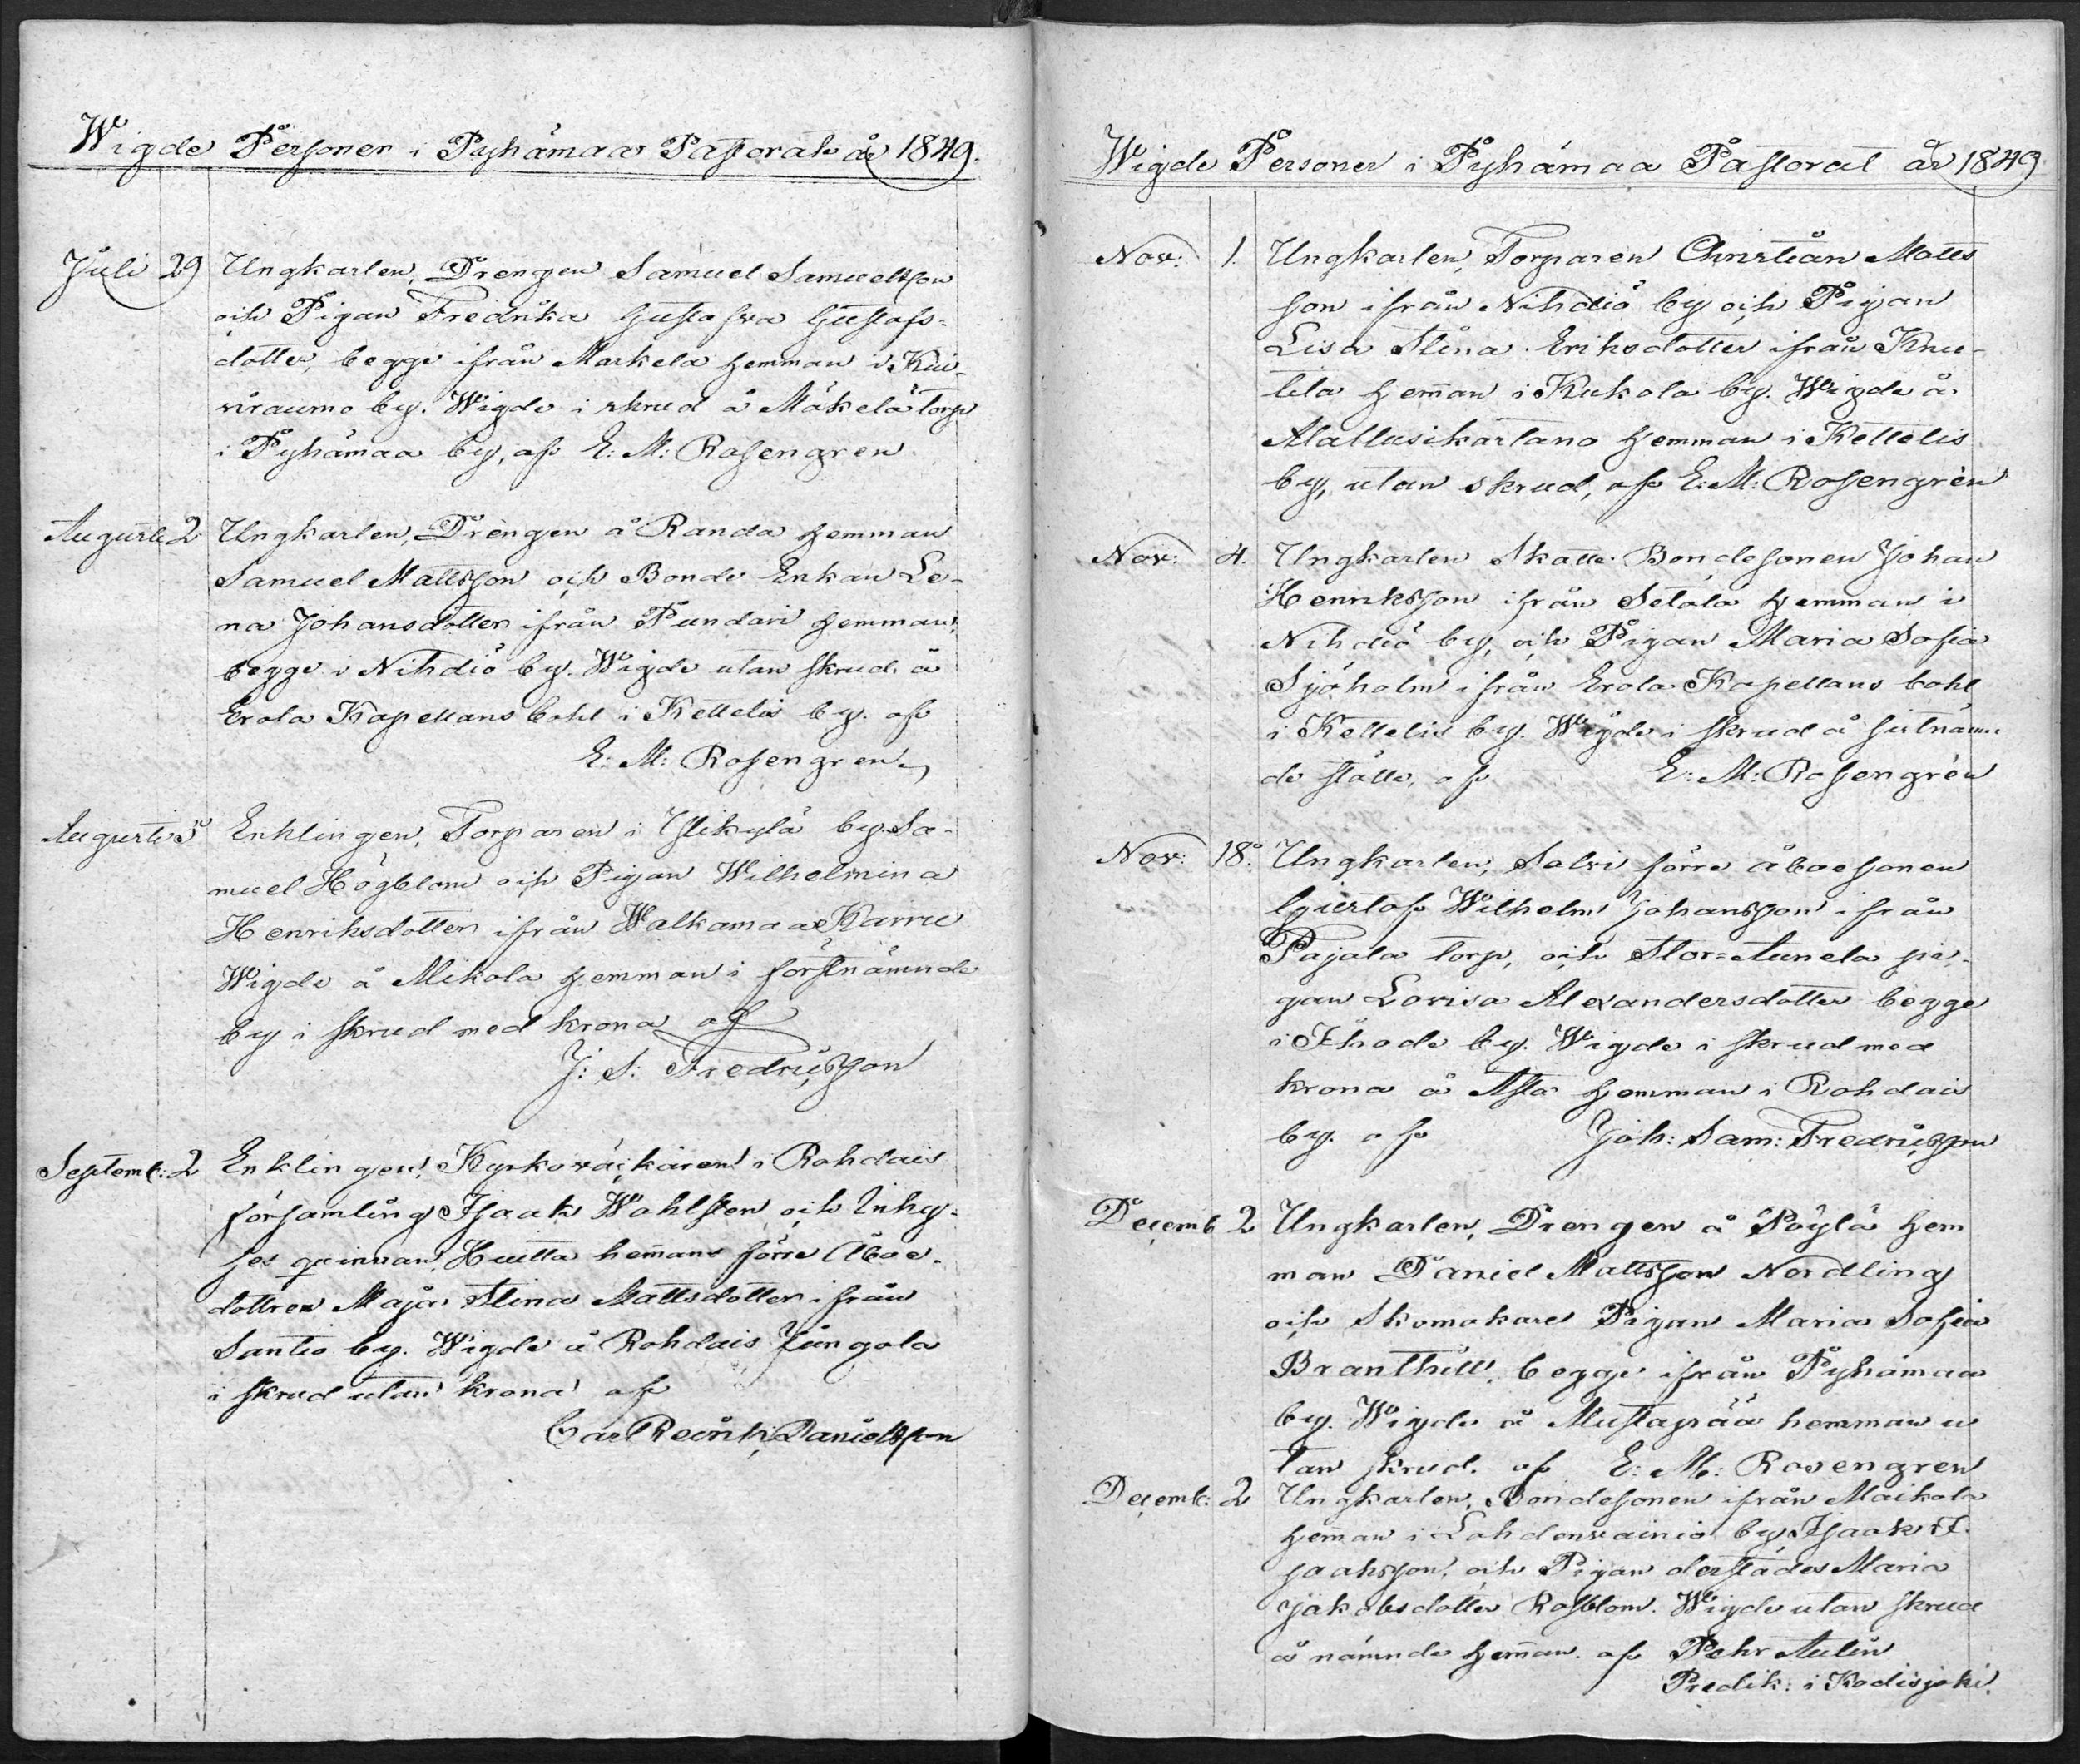 Wigde Personer i Pyhämaa Pastorat år 1849.
Juli 29 Ungkarlen, Drengen Samuel Samuelsson
och Pigan Fredrika Gustafva Gustafs-
dotter, begge ifrån Markela hemman i Kui-
viraumo by. Wigde i skrud å Mäkelä torp
i Pyhämaa by, af E: M: Rosengren
Augusti 2 Ungkarlen, Drengen å Randa hemman
Samuel Mattsson och Bonde Enkan Le-
na Johansdotter ifrån Pundari hemman,
begge i Nihdiö by. Wigde utan skrud å
Erola Kapellans bohl i Kettelis by. af
E: M: Rosengren
Augusti 5 Enklingen, Torparen i Ylikylä by Sa-
muel Högblom och Pigan Wilhelmina
Henriksdotter ifrån Walkamaa Karru
Wigde å Mikola hemman i förstnämnde
by i skrud med krona af
J: S: Fredricsson
Septemb: 2 Enklingen, Kyrkoväcktaren i Rohdais
församling Isaak Wahlsten och Inhy-
ses qvinnan, Huitta hemans förre Åboe-
dottren Maja Stina Mattsdotter ifrån
Santio by. Wigde å Rohdais Jungola
i skrud utan krona af
Carl Danielsson
Wigde Personer i Pyhämaa Pastorat år 1849
Nov: 1. Ungkarlen, Torparen Christian Matts
son ifrån Nihdiö by och Pigan
Lisa Stina Eriksdotter ifrån Knu-
tila heman i Kukola by. Wigde å
Alallusikartano hemman i Kettelis
by, utan skrud, af E: M: Rosengrén
Nov: 4. Ungkarlen Skatte Bondesonen Johan
Henriksson ifrån Setälä hemman i
Nihdiö by, och Pigan Maria Sofia
Sjöholm ifrån Erola Kapellans bohl
i Kettelis by. Wigde i skrud å sistnämn-
de ställe, af E: M: Rosengrén
Nov: 18. Ungkarlen, Salvi förre åboesonen
Gustaf Wilhelm Johansson ifrån
Pajala torp, och Stor-Aunela pi-
gan Lovisa Alexandersdotter begge
i Ihode by. Wigde i skrud med
krona å Asta hemman i Rohdais
by. af Joh: Sam: Fredricsson
Decemb 2 Ungkarlen, Drengen å Pöylä hem
man Daniel Mattsson Nordling
och Skomakare Pigan Maria Sofia
Branthill, begge ifrån Pyhämaa
by. Wigde å Mustapää hemman u
tan skrud. af E: M: Rosengren
Decemb: 2 Ungkarlen, Bondesonen ifrån Maikola
heman i Lahdenvainio by, Isaak I-
saaksson, och Pigan derstädes Maria
Jakobsdotter Rosblom. Wigde utan skrud
å nämnde heman. af Pehr Aulin
Predik: i Kodisjoki.